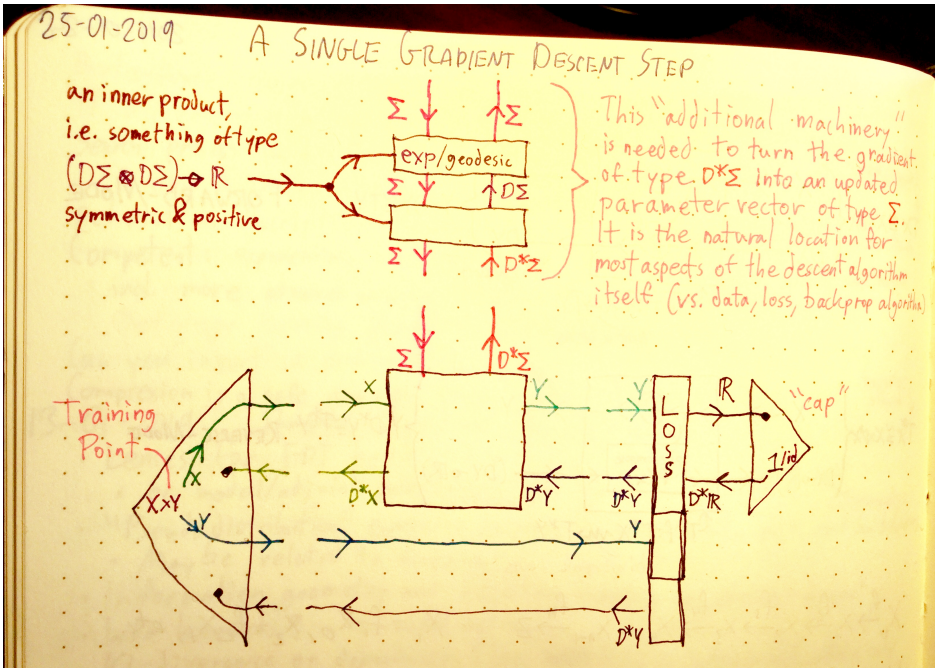 25-01-2019
A SINGLE GRADIENT DESCENT STEP
an inner product,
i.e. something of type
(DΣ ⊗ DΣ)⊸ ℝ
symmetric & positive
Σ
Σ
exp/geodesic
Σ
DΣ
Σ
D*Σ
This "additional machinery"
is needed to turn the gradient
of type D*Σ into an updated
parameter vector of type Σ.
It is the natural location for
most aspects of the descent algorithm
itself (vs. data, loss, backprop algorithm)
Σ
D*Σ
Training
Point
X×Y
X
Y
X
D*X
Y
D*Y
Y
D*Y
Y
D*Y
Loss
ℝ
D*ℝ
"cap"
1/id